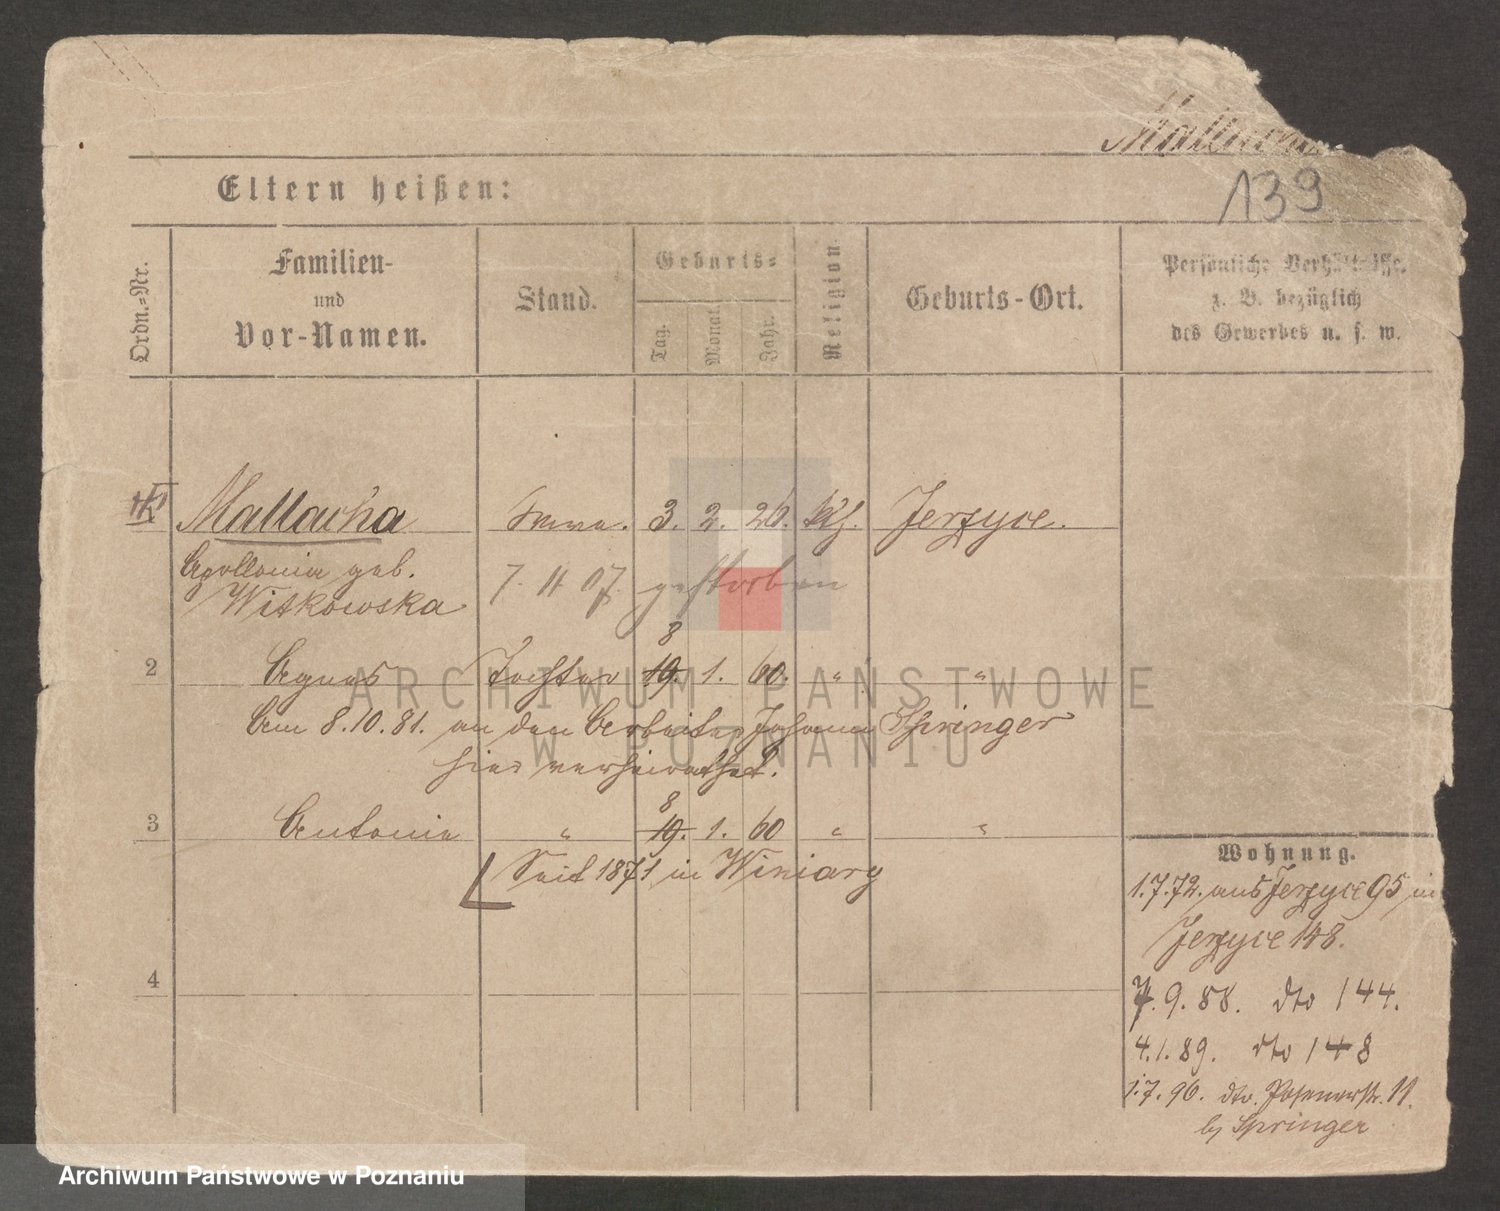 Mallacha
139
Eltern heißen:
Ordn.-Nr.
Familien-
und
Vor-Namen.
Stand.
Geburts-
Tag.
Monat.
Jahr.
Religion
Geburts-Ort.
Persönliche Verhältnisse.
z. B. bezüglich
des Gewerbes u. s. w.
Mallacha 3. 2. 26. kth. Jerzyce.
Apollonia geb.
Witkowska
7. 11 07 gestorben
8
2 Agnes Tochter 19. 1. 60. " "
Am 8.10.81. an den Arbeiter Johann Springer
hier verheirathet.
8
3 Antonie " 19. 1. 60 " "
Seit 1871 in Winiary
4
Wohnung.
1.7.72. aus Jerzyce 95 in
Jerzyce 148.
7.9.88. dto 144.
4.1.89. dto 148
1.7.96. dto. Posenerstr. 11.
by Springer
ARCHIWUM PAŃSTWOWE
W POZNANIU
Archiwum Państwowe w Poznaniu